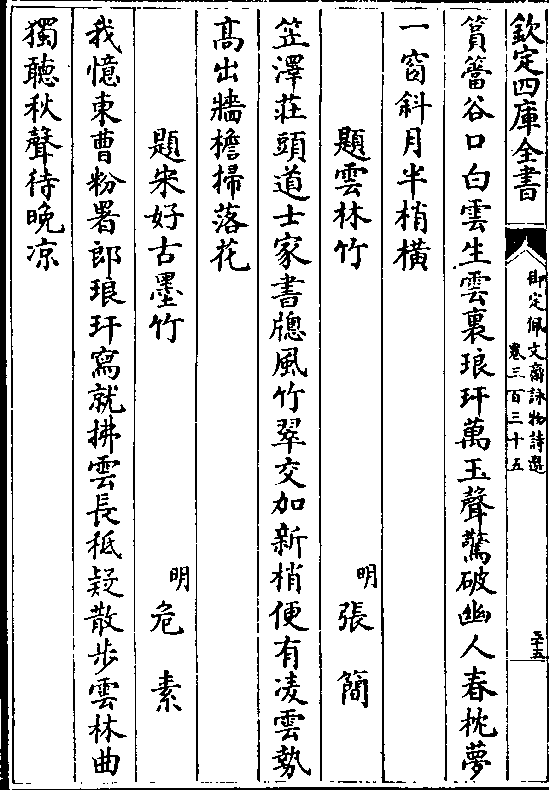 欽定四庫全書
御定佩文齋詠物詩選
卷三百三十五
五十五
篔簹谷口白雲生雲裏琅玕萬玉聲驚破幽人春枕夢
一窗斜月半梢橫
題雲林竹
明張簡
笠澤莊頭道士家書牕風竹翠交加新梢便有凌雲勢
髙出牆檐掃落花
題宋好古墨竹
明危素
我憶東曹粉署郎琅玕寫就拂雲長秖疑散步雲林曲
獨聽秋聲待晚凉